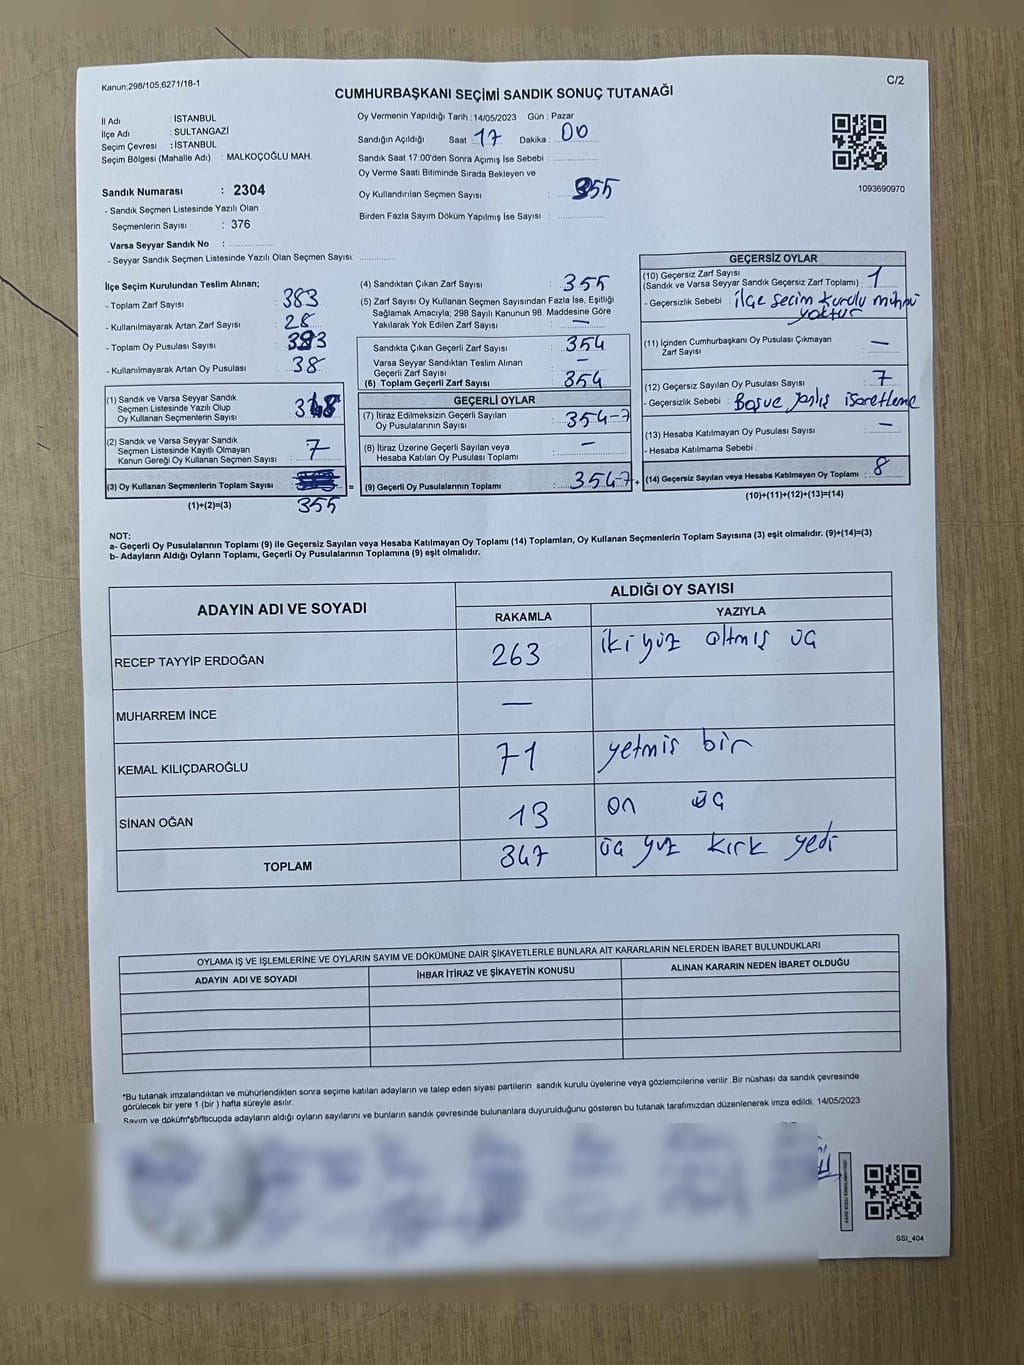 Kanun;298/105;6271/18-1
C/2
CUMHURBAŞKANI SEÇİMİ SANDIK SONUÇ TUTANAĞI
İl Adı : İSTANBUL
İlçe Adı : SULTANGAZİ
Seçim Çevresi : İSTANBUL
Seçim Bölgesi (Mahalle Adı) : MALKOÇOĞLU MAH.
Sandık Numarası : 2304
- Sandık Seçmen Listesinde Yazılı Olan
Seçmenlerin Sayısı : 376
Varsa Seyyar Sandık No : ..............
- Seyyar Sandık Seçmen Listesinde Yazılı Olan Seçmen Sayısı: ............
Oy Vermenin Yapıldığı Tarih : 14/05/2023 Gün : Pazar
Sandığın Açıldığı Saat : 17 Dakika : 00
Sandık Saat 17:00'den Sonra Açımış İse Sebebi : ..............
Oy Verme Saati Bitiminde Sırada Bekleyen ve
Oy Kullandırılan Seçmen Sayısı : 355
Birden Fazla Sayım Döküm Yapılmış İse Sayısı : ..............
1093690970
İlçe Seçim Kurulundan Teslim Alınan;
- Toplam Zarf Sayısı : 383
- Kullanılmayarak Artan Zarf Sayısı : 28
- Toplam Oy Pusulası Sayısı : 393
- Kullanılmayarak Artan Oy Pusulası : 38
(1) Sandık ve Varsa Seyyar Sandık
Seçmen Listesinde Yazılı Olup
Oy Kullanan Seçmenlerin Sayısı : 348
(2) Sandık ve Varsa Seyyar Sandık
Seçmen Listesinde Kayıtlı Olmayan
Kanun Gereği Oy Kullanan Seçmen Sayısı : 7
(3) Oy Kullanan Seçmenlerin Toplam Sayısı =
(1)+(2)=(3) 355
(4) Sandıktan Çıkan Zarf Sayısı : 355
(5) Zarf Sayısı Oy Kullanan Seçmen Sayısından Fazla İse, Eşitliği
Sağlamak Amacıyla, 298 Sayılı Kanunun 98. Maddesine Göre
Yakılarak Yok Edilen Zarf Sayısı : —
Sandıkta Çıkan Geçerli Zarf Sayısı : 354
Varsa Seyyar Sandıktan Teslim Alınan
Geçerli Zarf Sayısı : —
(6) Toplam Geçerli Zarf Sayısı : 354
GEÇERLİ OYLAR
(7) İtiraz Edilmeksizin Geçerli Sayılan
Oy Pusulalarının Sayısı : 354-7
(8) İtiraz Üzerine Geçerli Sayılan veya
Hesaba Katılan Oy Pusulası Toplamı : —
(9) Geçerli Oy Pusulalarının Toplamı : 354-7 +
GEÇERSİZ OYLAR
(10) Geçersiz Zarf Sayısı
(Sandık ve Varsa Seyyar Sandık Geçersiz Zarf Toplamı) : 1
- Geçersizlik Sebebi : ilçe seçim kurulu mührü
yoktur
(11) İçinden Cumhurbaşkanı Oy Pusulası Çıkmayan
Zarf Sayısı : —
(12) Geçersiz Sayılan Oy Pusulası Sayısı : 7
- Geçersizlik Sebebi : Boş ve yanlış işaretleme
(13) Hesaba Katılmayan Oy Pusulası Sayısı : —
- Hesaba Katılmama Sebebi :
(14) Geçersiz Sayılan veya Hesaba Katılmayan Oy Toplamı : 8
(10)+(11)+(12)+(13)=(14)
NOT:
a- Geçerli Oy Pusulalarının Toplamı (9) ile Geçersiz Sayılan veya Hesaba Katılmayan Oy Toplamı (14) Toplamları, Oy Kullanan Seçmenlerin Toplam Sayısına (3) eşit olmalıdır. (9)+(14)=(3)
b- Adayların Aldığı Oyların Toplamı, Geçerli Oy Pusulalarının Toplamına (9) eşit olmalıdır.
ADAYIN ADI VE SOYADI
ALDIĞI OY SAYISI
RAKAMLA YAZIYLA
RECEP TAYYİP ERDOĞAN 263 iki yüz altmış üç
MUHARREM İNCE —
KEMAL KILIÇDAROĞLU 71 yetmis bir
SİNAN OĞAN 13 on üç
TOPLAM 347 üç yüz kırk yedi
OYLAMA İŞ VE İŞLEMLERİNE VE OYLARIN SAYIM VE DÖKÜMÜNE DAİR ŞİKAYETLERLE BUNLARA AİT KARARLARIN NELERDEN İBARET BULUNDUKLARI
ADAYIN ADI VE SOYADI İHBAR İTİRAZ VE ŞİKAYETİN KONUSU ALINAN KARARIN NEDEN İBARET OLDUĞU
*Bu tutanak imzalandıktan ve mühürlendikten sonra seçime katılan adayların ve talep eden siyasi partilerin sandık kurulu üyelerine veya gözlemcilerine verilir .Bir nüshası da sandık çevresinde
görülecek bir yere 1 (bir ) hafta süreyle asılır.
Sayım ve döküm sonucunda adayların aldığı oyların sayılarını ve bunların sandık çevresinde bulunanlara duyurulduğunu gösteren bu tutanak tarafımızdan düzenlenerek imza edildi. 14/05/2023
SSI_404